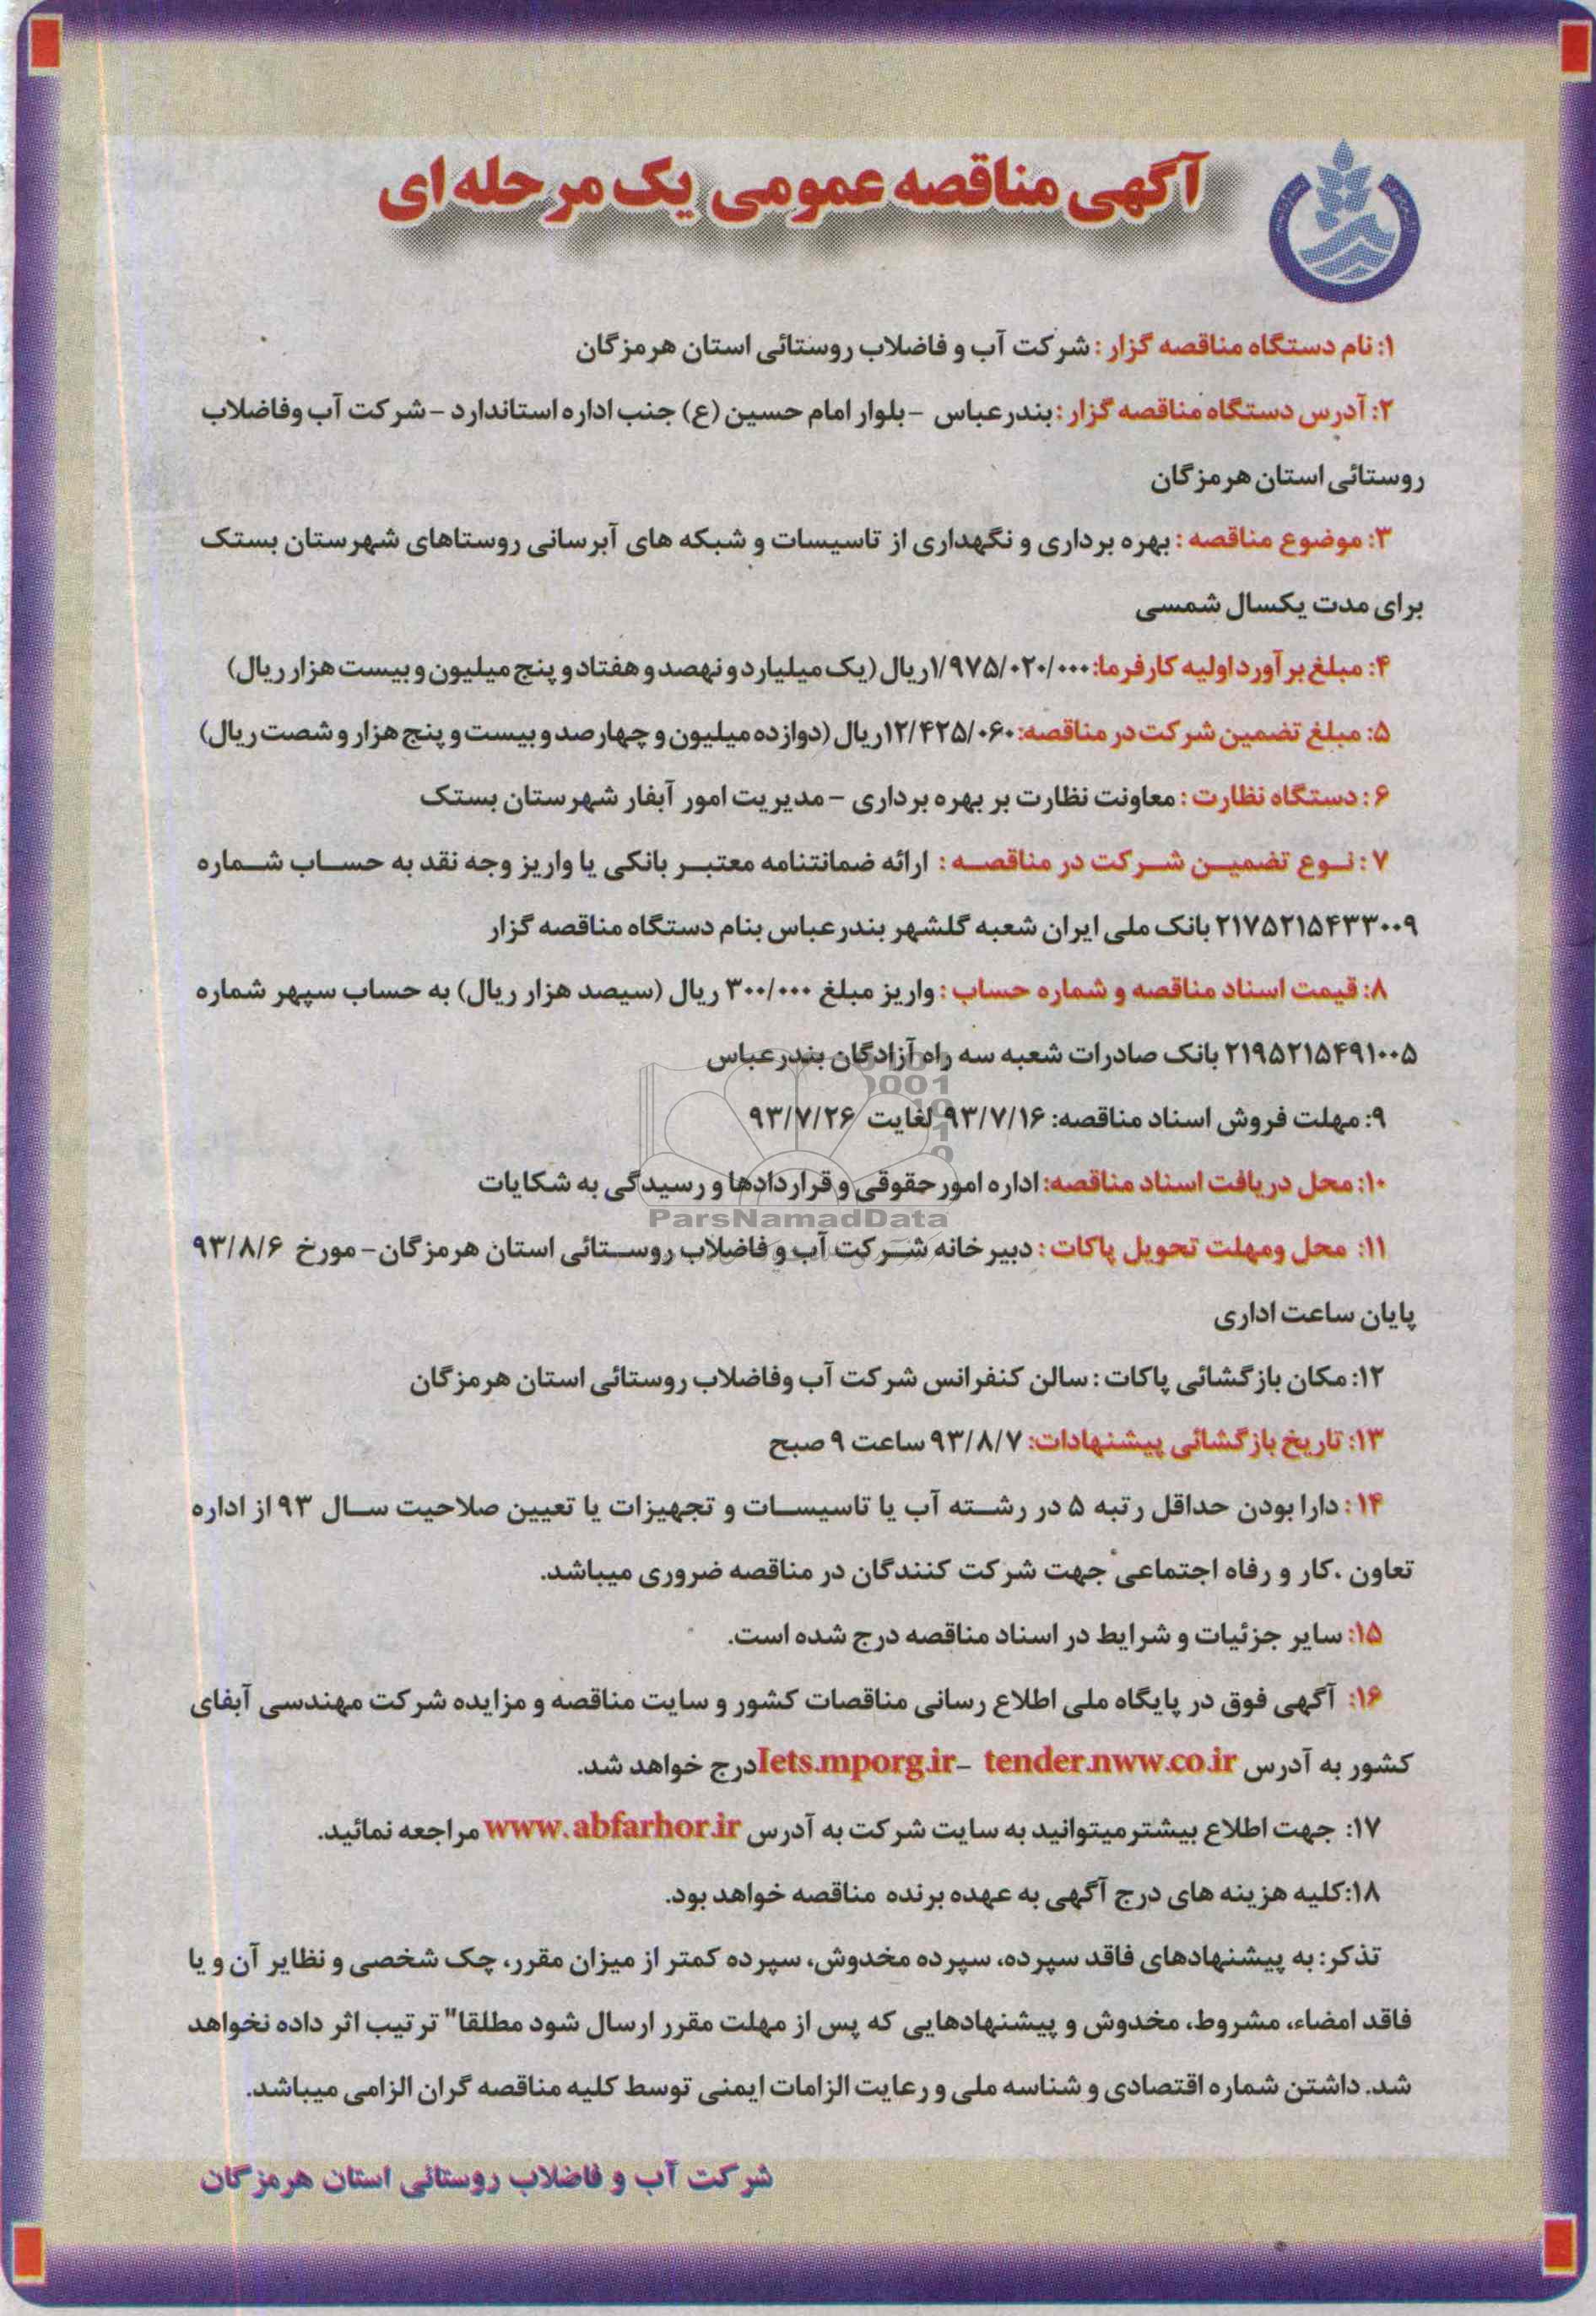 آگهی مناقصه عمومی یک مرحله ای
۱: نام دستگاه مناقصه گزار : شرکت آب و فاضلاب روستائی استان هرمزگان
۲: آدرس دستگاه مناقصه گزار : بندرعباس - بلوار امام حسین (ع) جنب اداره استاندارد - شرکت آب وفاضلاب
روستائی استان هرمزگان
۳: موضوع مناقصه : بهره برداری و نگهداری از تاسیسات و شبکه های آبرسانی روستاهای شهرستان بستک
برای مدت یکسال شمسی
۴: مبلغ برآورد اولیه کارفرما: ۱/۹۷۵/۰۲۰/۰۰۰ریال (یک میلیارد و نهصد و هفتاد و پنج میلیون و بیست هزار ریال)
۵: مبلغ تضمین شرکت در مناقصه: ۱۲/۴۲۵/۰۶۰ریال (دوازده میلیون و چهارصد و بیست و پنج هزار و شصت ریال)
۶ : دستگاه نظارت : معاونت نظارت بر بهره برداری - مدیریت امور آبفار شهرستان بستک
۷ : نوع تضمین شرکت در مناقصه : ارائه ضمانتنامه معتبر بانکی یا واریز وجه نقد به حساب شماره
۲۱۷۵۲۱۵۴۳۳۰۰۹ بانک ملی ایران شعبه گلشهر بندرعباس بنام دستگاه مناقصه گزار
۸: قیمت اسناد مناقصه و شماره حساب : واریز مبلغ ۳۰۰/۰۰۰ ریال (سیصد هزار ریال) به حساب سپهر شماره
۲۱۹۵۲۱۵۴۹۱۰۰۵ بانک صادرات شعبه سه راه آزادگان بندرعباس
۹: مهلت فروش اسناد مناقصه: ۹۳/۷/۱۶ لغایت ۹۳/۷/۲۶
۱۰: محل دریافت اسناد مناقصه: اداره امور حقوقی و قراردادها و رسیدگی به شکایات
ParsNamadData
۱۱: محل ومهلت تحویل پاکات : دبیرخانه شرکت آب و فاضلاب روستائی استان هرمزگان - مورخ ۹۳/۸/۶
پایان ساعت اداری
۱۲: مکان بازگشائی پاکات : سالن کنفرانس شرکت آب وفاضلاب روستائی استان هرمزگان
۱۳: تاریخ بازگشائی پیشنهادات: ۹۳/۸/۷ ساعت ۹ صبح
۱۴ : دارا بودن حداقل رتبه ۵ در رشته آب یا تاسیسات و تجهیزات یا تعیین صلاحیت سال ۹۳ از اداره
تعاون ،کار و رفاه اجتماعی جهت شرکت کنندگان در مناقصه ضروری میباشد.
۱۵: سایر جزئیات و شرایط در اسناد مناقصه درج شده است.
۱۶: آگهی فوق در پایگاه ملی اطلاع رسانی مناقصات کشور و سایت مناقصه و مزایده شرکت مهندسی آبفای
کشور به آدرس Iets.mporg.ir- tender.nww.co.irدرج خواهد شد.
۱۷: جهت اطلاع بیشترمیتوانید به سایت شرکت به آدرس www.abfarhor.ir مراجعه نمائید.
۱۸:کلیه هزینه های درج آگهی به عهده برنده مناقصه خواهد بود.
تذکر: به پیشنهادهای فاقد سپرده، سپرده مخدوش، سپرده کمتر از میزان مقرر، چک شخصی و نظایر آن و یا
فاقد امضاء، مشروط، مخدوش و پیشنهادهایی که پس از مهلت مقرر ارسال شود مطلقا" ترتیب اثر داده نخواهد
شد. داشتن شماره اقتصادی و شناسه ملی و رعایت الزامات ایمنی توسط کلیه مناقصه گران الزامی میباشد.
شرکت آب و فاضلاب روستائی استان هرمزگان